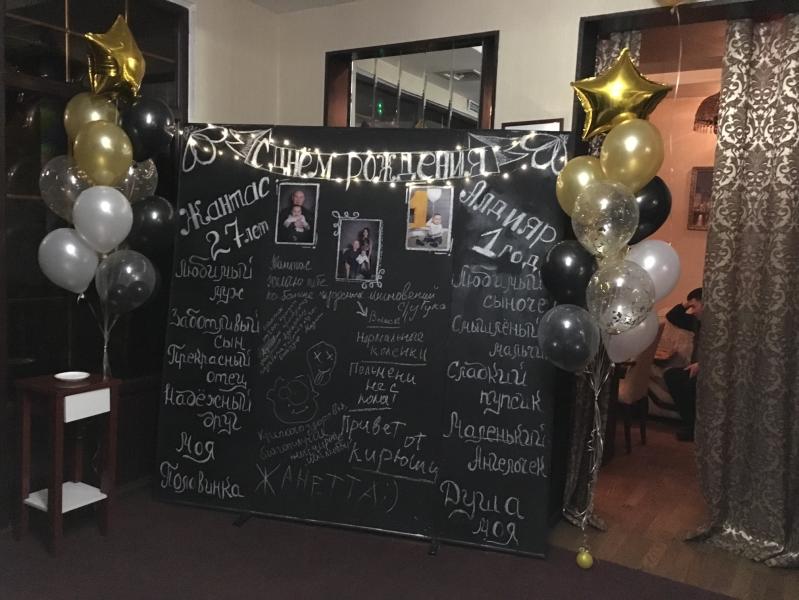 С ДНЁМ РОЖДЕНИЯ
Жантас
27 лет
Любимый
муж
Заботливый
сын
Прекрасный
отец
Надёжный
друг
моя
Половинка
Жантас
желаю тебе
по больше чудесных мгновений
Нормальные
коленки
Пельмени
не с
пола!
Привет от
Кирюши
ЖАНЕТТА:)
Алдияр
1 год
Любимый
сыночек
Смышлёный
малыш
Сладкий
пупсик
Маленький
Ангелочек
Душа
моя